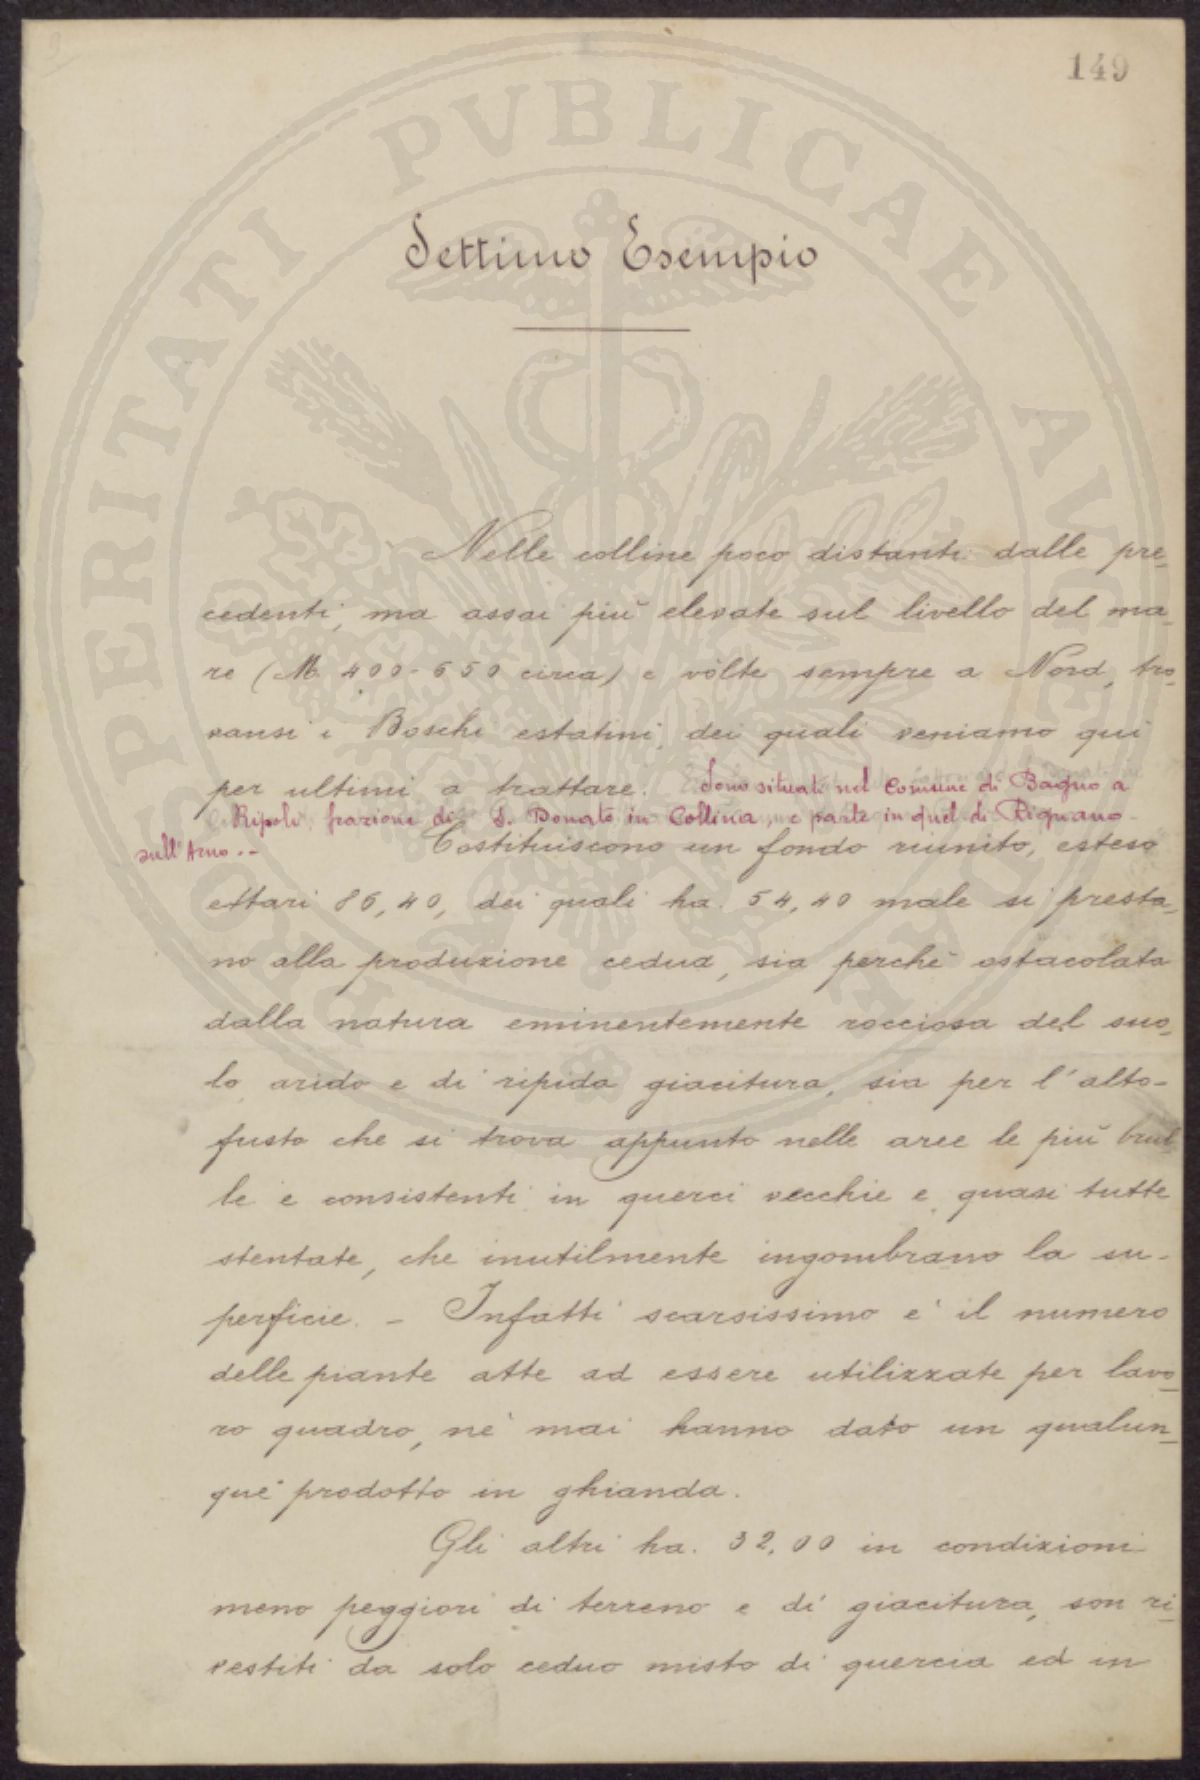 149
Settimo Esempio
Nelle colline poco distanti dalle pre-
cedenti, ma assai più elevate sul livello del ma-
re (M. 400-650 circa) e vòlte sempre a Nord, tro-
vansi i Boschi estatini, dei quali veniamo qui
per ultimi a trattare. Sono situati nel Comune di Bagno a
Ripoli, frazione di S. Donato in Collina, e parte in quel di Rignano
sull'Arno.--
Costituiscono un fondo riunito, esteso
ettari 86,40, dei quali ha. 54,40 male si presta-
no alla produzione cedua, sia perchè ostacolata
dalla natura eminentemente rocciosa del suo-
lo arido e di ripida giacitura, sia per l'alto-
fusto che si trova appunto nelle aree le più brul
le e consistenti in querci vecchie e quasi tutte
stentate, che inutilmente ingombrano la su-
perficie. - Infatti scarsissimo è il numero
delle piante atte ad essere utilizzate per lavo-
ro quadro, nè mai hanno dato un qualun-
que prodotto in ghianda.
Gli altri ha. 32,00 in condizioni
meno peggiori di terreno e di giacitura, son ri-
vestiti da solo ceduo misto di quercia ed in
PROSPERITATI PVBLICAE AVGENDAE